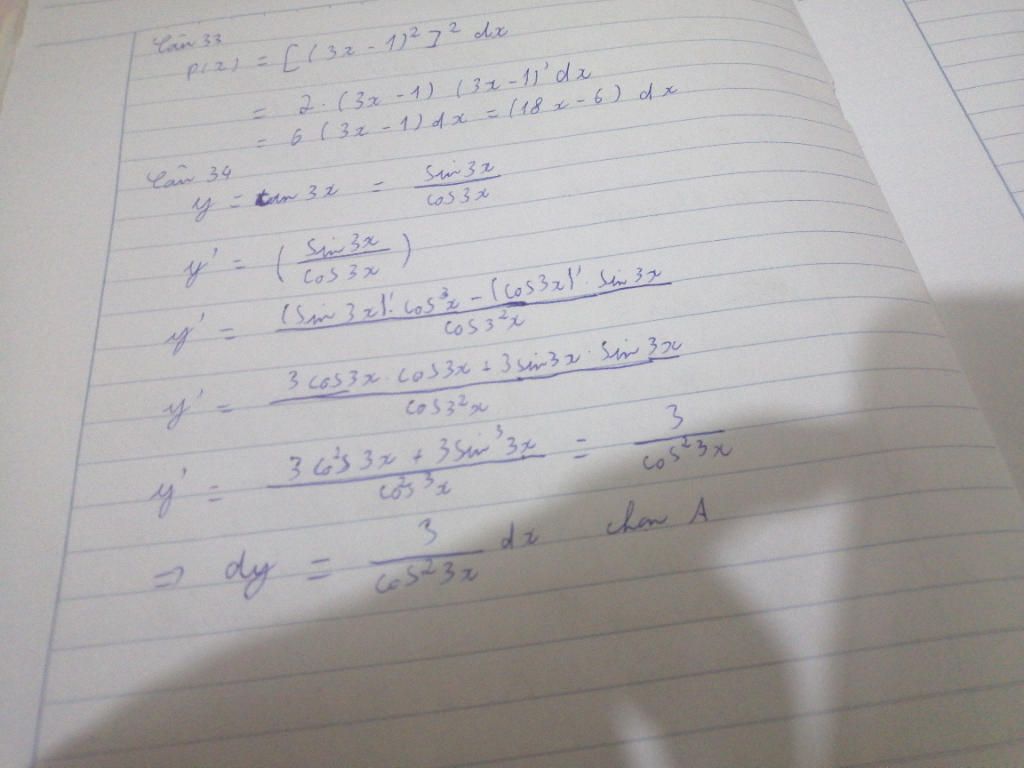 Câu 33
P(x) = [(3x - 1)²]² dx
= 2 · (3x - 1) (3x - 1)' dx
= 6 (3x - 1) dx = (18x - 6) dx
Câu 34
y = tan 3x = sin3x / cos3x
y' = ( sin3x / cos3x )
y' = (sin 3x)' · cos³x - (cos3x)' · sin3x / cos3²x
y' = 3cos3x · cos3x + 3sin3x · sin3x / cos3²x
y' = 3cos²3x + 3sin³3x / cos²3x = 3 / cos²3x
⇒ dy = 3 / cos²3x dx chọn A